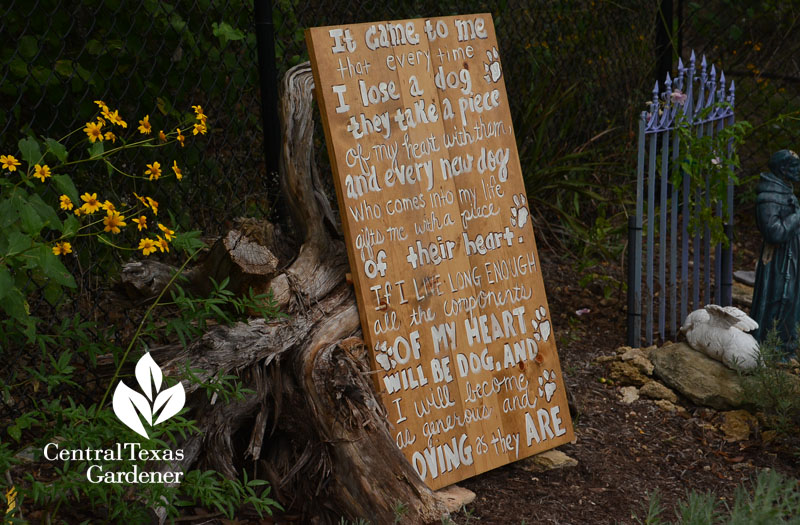 It came to me
that every time
I lose a dog
they take a piece
of my heart with them,
and every new dog
who comes into my life
gifts me with a piece
of their heart.
If I LIVE LONG ENOUGH
all the components
OF MY HEART
WILL BE DOG, AND
I will become
as generous and
LOVING as they ARE
CentralTexas
Gardener